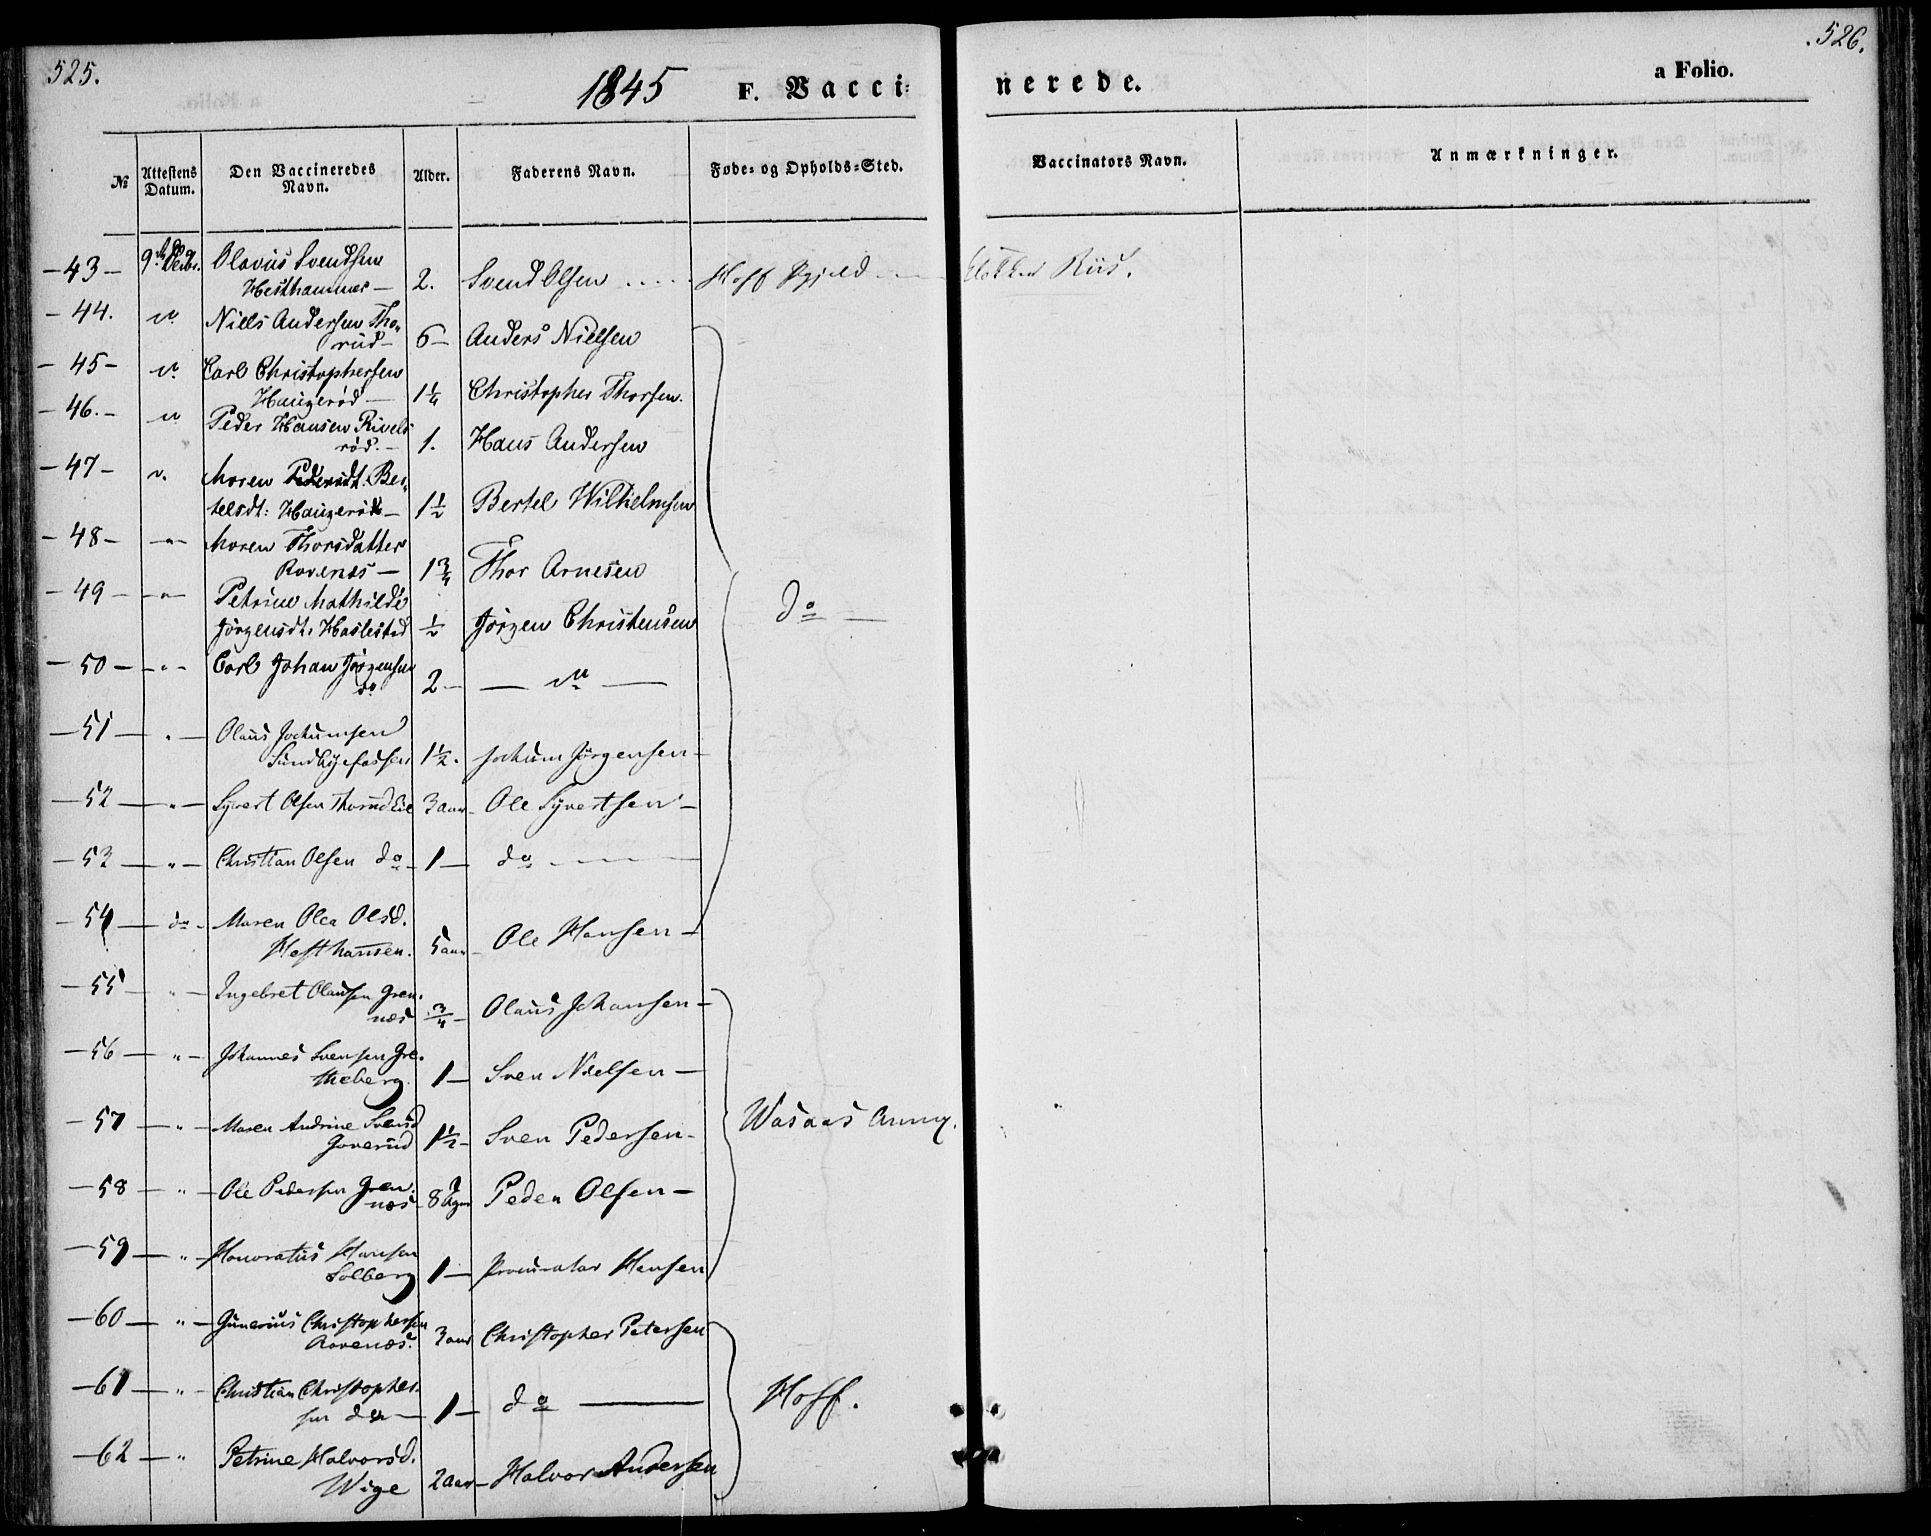 525.
1845 F. Vacci-
No Attestens Datum. Den Vaccineredes Navn. Alder. Faderens Navn. Føde- og Opholds-Sted.
-43- 9de Decbr. Olavus Svendsen
Hesthammer- 2. Svend Olsen Hoff
-44. Niels Andersen Tho-
rud- 6- Anders Nielsen
-45- Carl Christophersen
Haugerød- 1¼ Christopher Thorsen.
-46.- Peder Hansen Rivels
rød.- 1. Hans Andersen
-47- Maren Pedersdt. Ber-
telsdt: Haugerød- 1½ Bertel Wilhelmsen
-48- -"- Maren Thorsdatter
Rovenæs- 1¾ Thor Arnesen
-49- -"- Petrine Mathilde
Jörgensdt. Haslestad ½ Jörgen Christensen do
-50- -"- Carl Johan Jörgensen
do 2-
-51- " - Olaus Jochumsen
Sundbyefossen 1½. Jochum Jörgensen-
-52- -"- Syvert Olsen Thorud Eie 3 aar- Ole Syvertsen-
-53- -"- Christian Olsen do 1- do
-54- do- Maren Olea Olsd.
5 aar- Ole Hansen-
-55- "- Ingebret Olausen Gren-
næs ¾- Olaus Johansen-
-56- "- Johannes Svensen Gre-
theberg. 1- Sven Nielsen-
-57- "- Maren Andrine Svensd
Joverud 1½- Sven Pedersen- Wasaas Anny.
-58- "- Ole Pedersen Gren-
næs 8 Peder Olsen-
-59- "- Honoratus Hansen
Solberg 1- Procurator Hansen
-60- "- Gunerius Christophersen
Rovenæs. 3 aar Christopher Petersen
-61- "- Christian Christopher-
sen do- 1- do Hoff.
-62- " Petrine Halvorsd.
Wige 2 aar- Halvor Andersen
526.
nerede. a Folio.
Vaccinators Navn. Anmærkninger.
Klokker Riis.